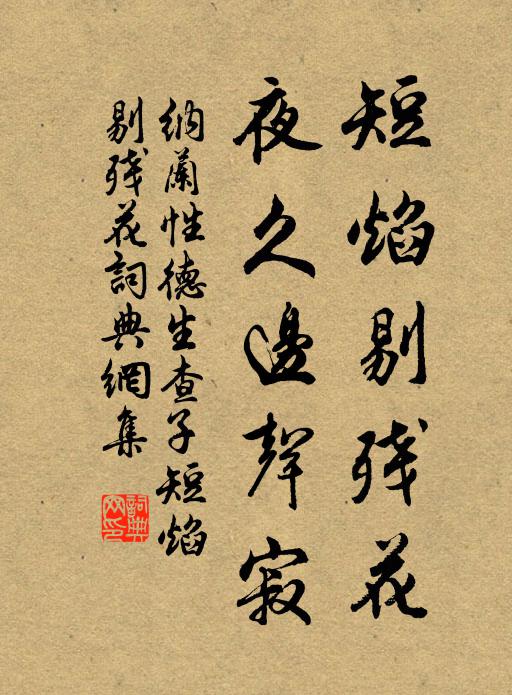 短焰剔残花
夜久邊聲寂
納蘭性德生查子短焰
剔残花詞典網集
詞典网印